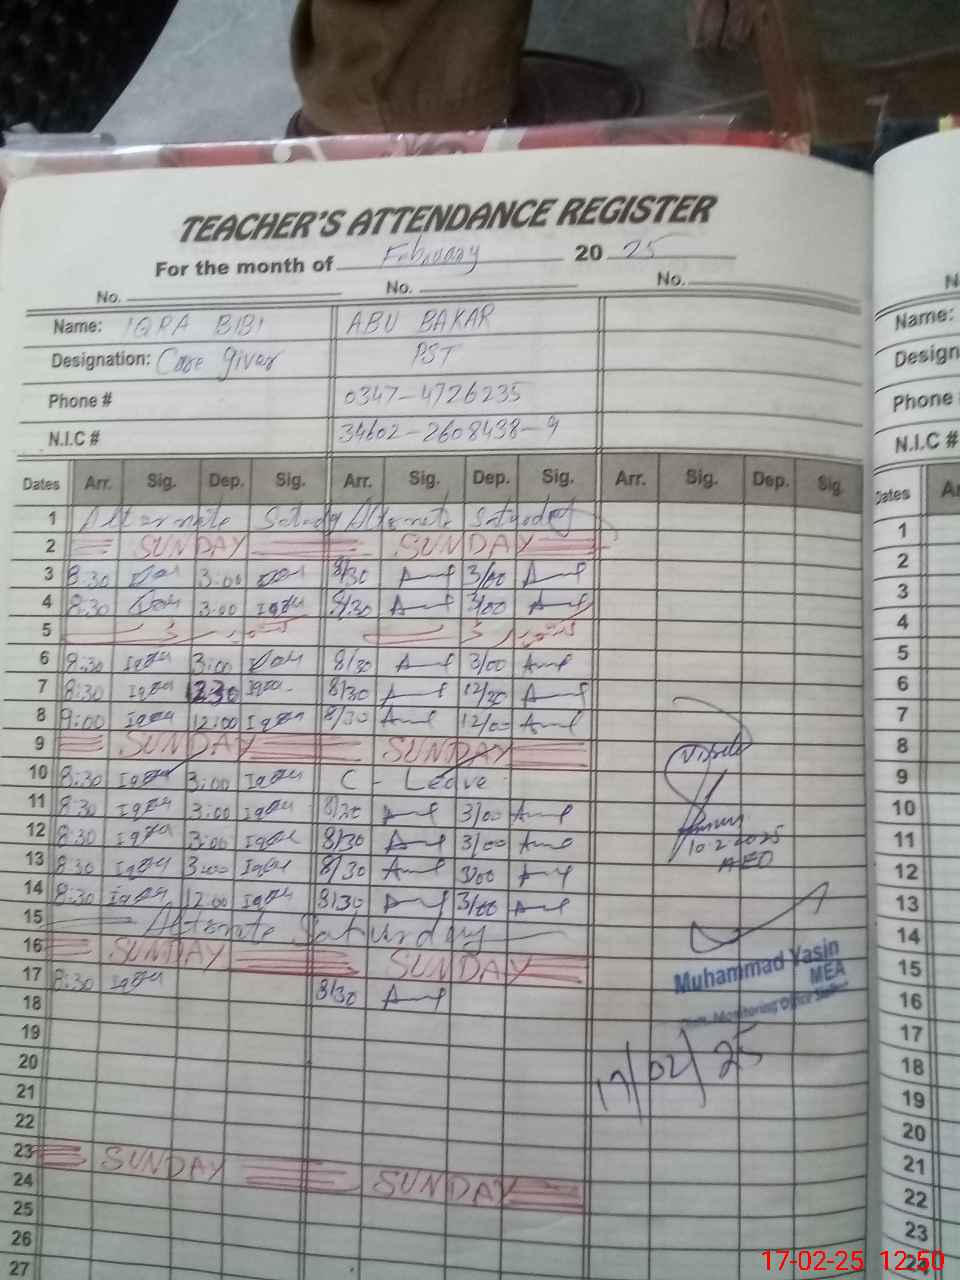 TEACHER'S ATTENDANCE REGISTER
For the month of February 2025
No. No. No.
Name: IQRA BIBI ABU BAKAR
Designation: Care giver PST
Phone # 0347-4726235
N.I.C # 34602-2608438-9
Dates Arr. Sig. Dep. Sig. Arr. Sig. Dep. Sig. Arr. Sig. Dep. Sig.
1 Alternate Saturday Alternate Saturday
2 SUNDAY SUNDAY
3 8:30 3:00 8/30 3/00
4 8:30 3:00 Iqra 8/30 3/00
5
6 8:30 Iqra 3:00 8/30 3/00
7 8:30 Iqra 12:30 Iqra 8/30 12/30
8 9:00 Iqra 12:00 Iqra 8/30 12/00
9 SUNDAY SUNDAY
10 8:30 Iqra 3:00 Iqra C - Leave
11 8:30 Iqra 3:00 Iqra 8/30 3/00
12 8:30 Iqra 3:00 Iqra 8/30 3/00
13 8:30 Iqra 3:00 Iqra 8/30 3/00
14 8:30 Iqra 12:00 Iqra 8/30 3/00
15 Alternate Saturday
16 SUNDAY SUNDAY
17 8:30 Iqra 8/30
18
19
20
21
22
23 SUNDAY SUNDAY
24
25
26
27
10-2-2025
AEO
Muhammad Yasin
MEA
Monitoring Office
17/02/25
Name:
Design
Phone
N.I.C #
Dates
1
2
3
4
5
6
7
8
9
10
11
12
13
14
15
16
17
18
19
20
21
22
23
24
17-02-25 12:50